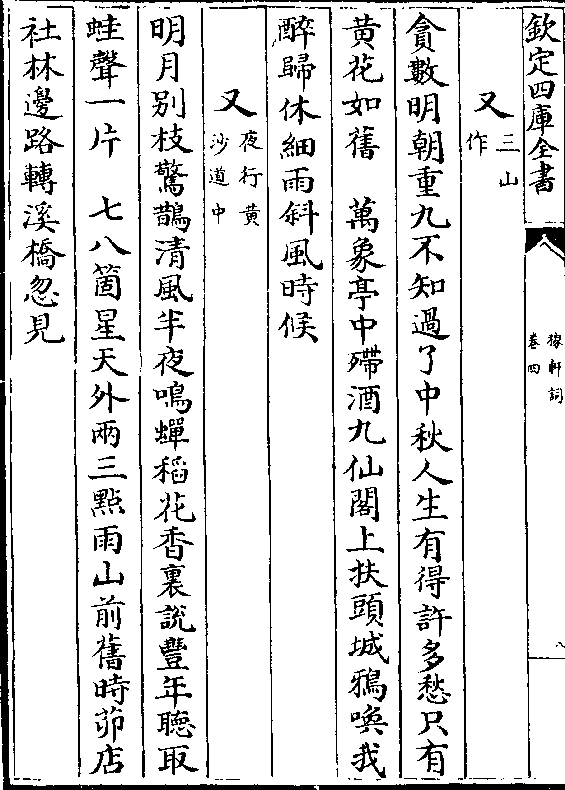 欽定四庫全書
稼軒詞
卷四
八
又三山作
貪數明朝重九不知過了中秋人生有得許多愁只有
黄花如舊　萬象亭中殢酒九仙閣上扶頭城鴉喚我
醉歸休細雨斜風時候
又夜行黄沙道中
明月别枝驚鵲清風半夜鳴蟬稻花香裏說豐年聽取
蛙聲一片　七八箇星天外兩三點雨山前舊時茆店
社林邊路轉溪橋忽見